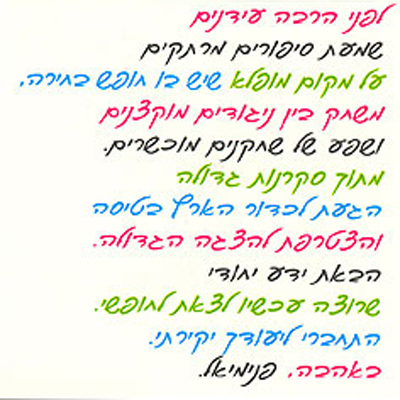 לפני הרבה עידנים
שמעת סיפורים מרתקים
על מקום מופלא שיש בו חופש בחירה,
משחק בין ניגודים מוקצנים
ושפע של שחקנים מוכשרים.
מתוך סקרנות גדולה
הגעת לכדור הארץ בטיסה
והצטרפת להצגה הגדולה.
הבאת ידע יחודי
שרוצה עכשיו לצאת לחופשי.
התחברי ליעודך יקירתי.
באהבה, פנימיאל.